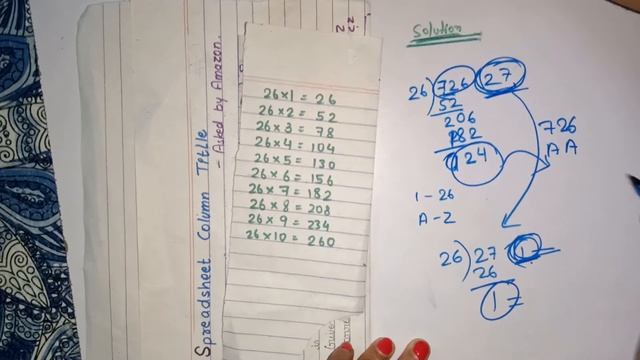 Spreadsheet Column Title
- Asked by Amazon.
26 × 1 = 26
26 × 2 = 52
26 × 3 = 78
26 × 4 = 104
26 × 5 = 130
26 × 6 = 156
26 × 7 = 182
26 × 8 = 208
26 × 9 = 234
26 × 10 = 260
Solution
26) 726 (27
52
206
182
24
726
A A
1 - 26
A - Z
26) 27 (1
26
1